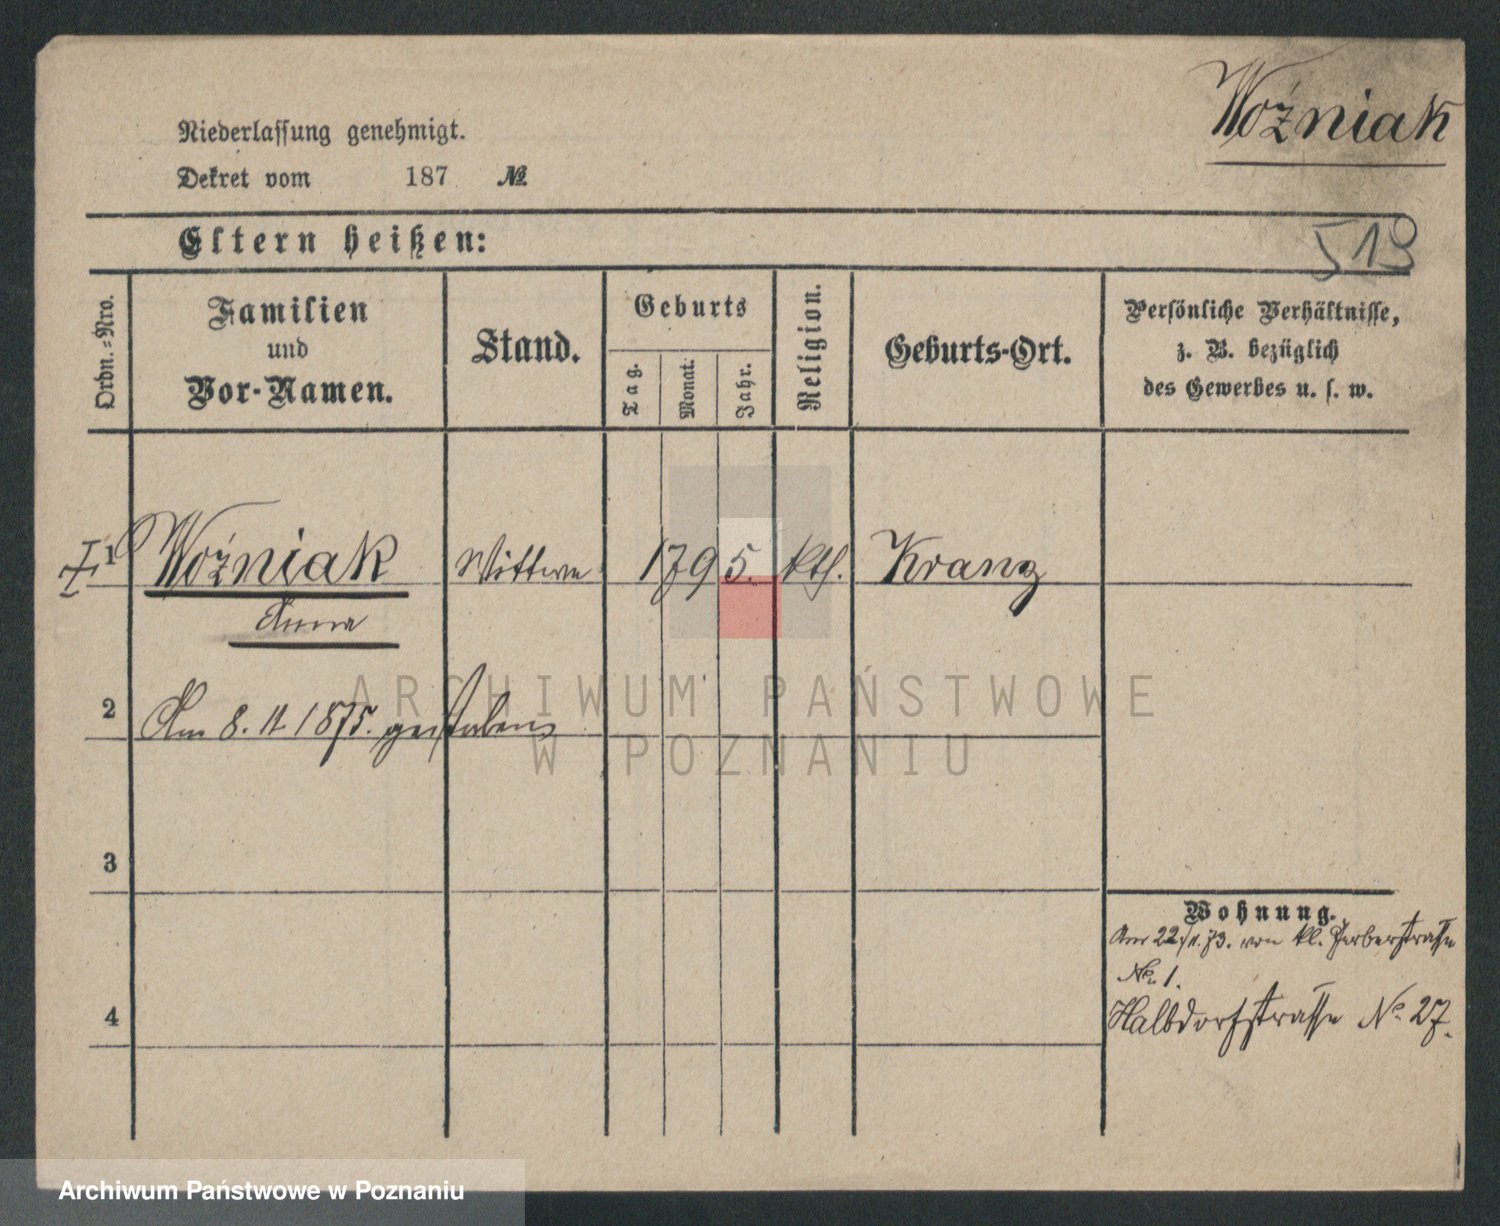 Woźniak
Niederlassung genehmigt.
Dekret vom 187 №
519
Eltern heißen:
Ordn.-Nro.
Familien
und
Vor-Namen.
Stand.
Geburts
Tag.
Monat.
Jahr.
Religion.
Geburts-Ort.
Persönliche Verhältnisse,
z. B. bezüglich
des Gewerbes u. s. w.
1 Woźniak Wittwe 1795. kth. Kranz
Anna
2 Am 8. 11 1875. gestorben
3
4
Wohnung.
Am 22/11.73. von kl. Gerberstrasse
No. 1.
Halbdorfstrasse No. 27.
ARCHIWUM PAŃSTWOWE
W POZNANIU
Archiwum Państwowe w Poznaniu